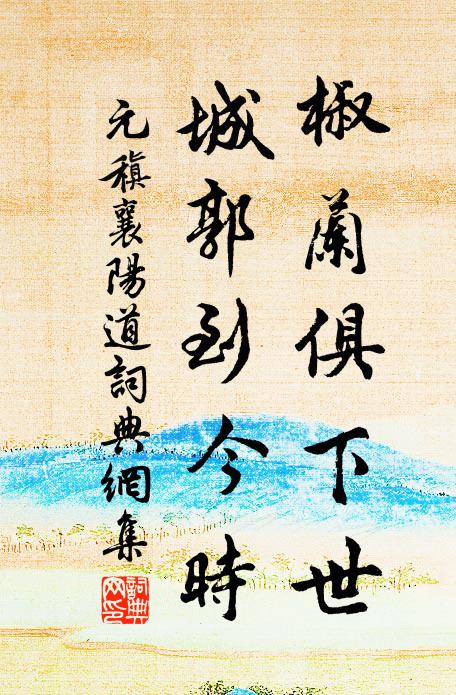 椒蘭俱下世
城郭到今時
元稹襄陽道詞典網集